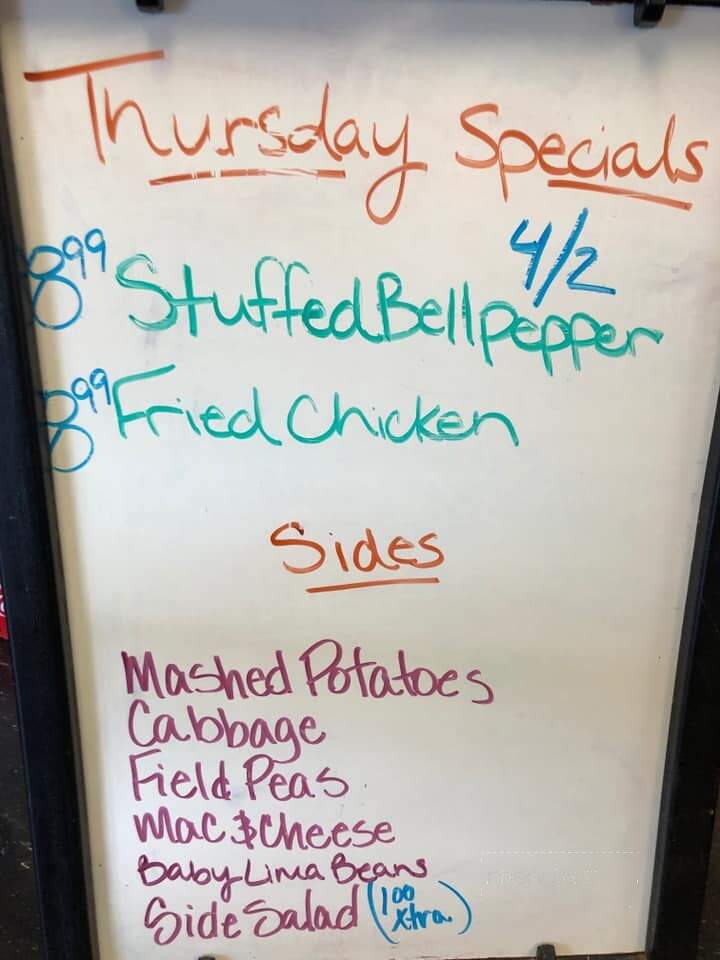 Thursday Specials
4/2
8.99 Stuffed Bellpepper
8.99 Fried Chicken
Sides
Mashed Potatoes
Cabbage
Field Peas
Mac $ Cheese
Baby Lima Beans
Side Salad (100 Xtra)